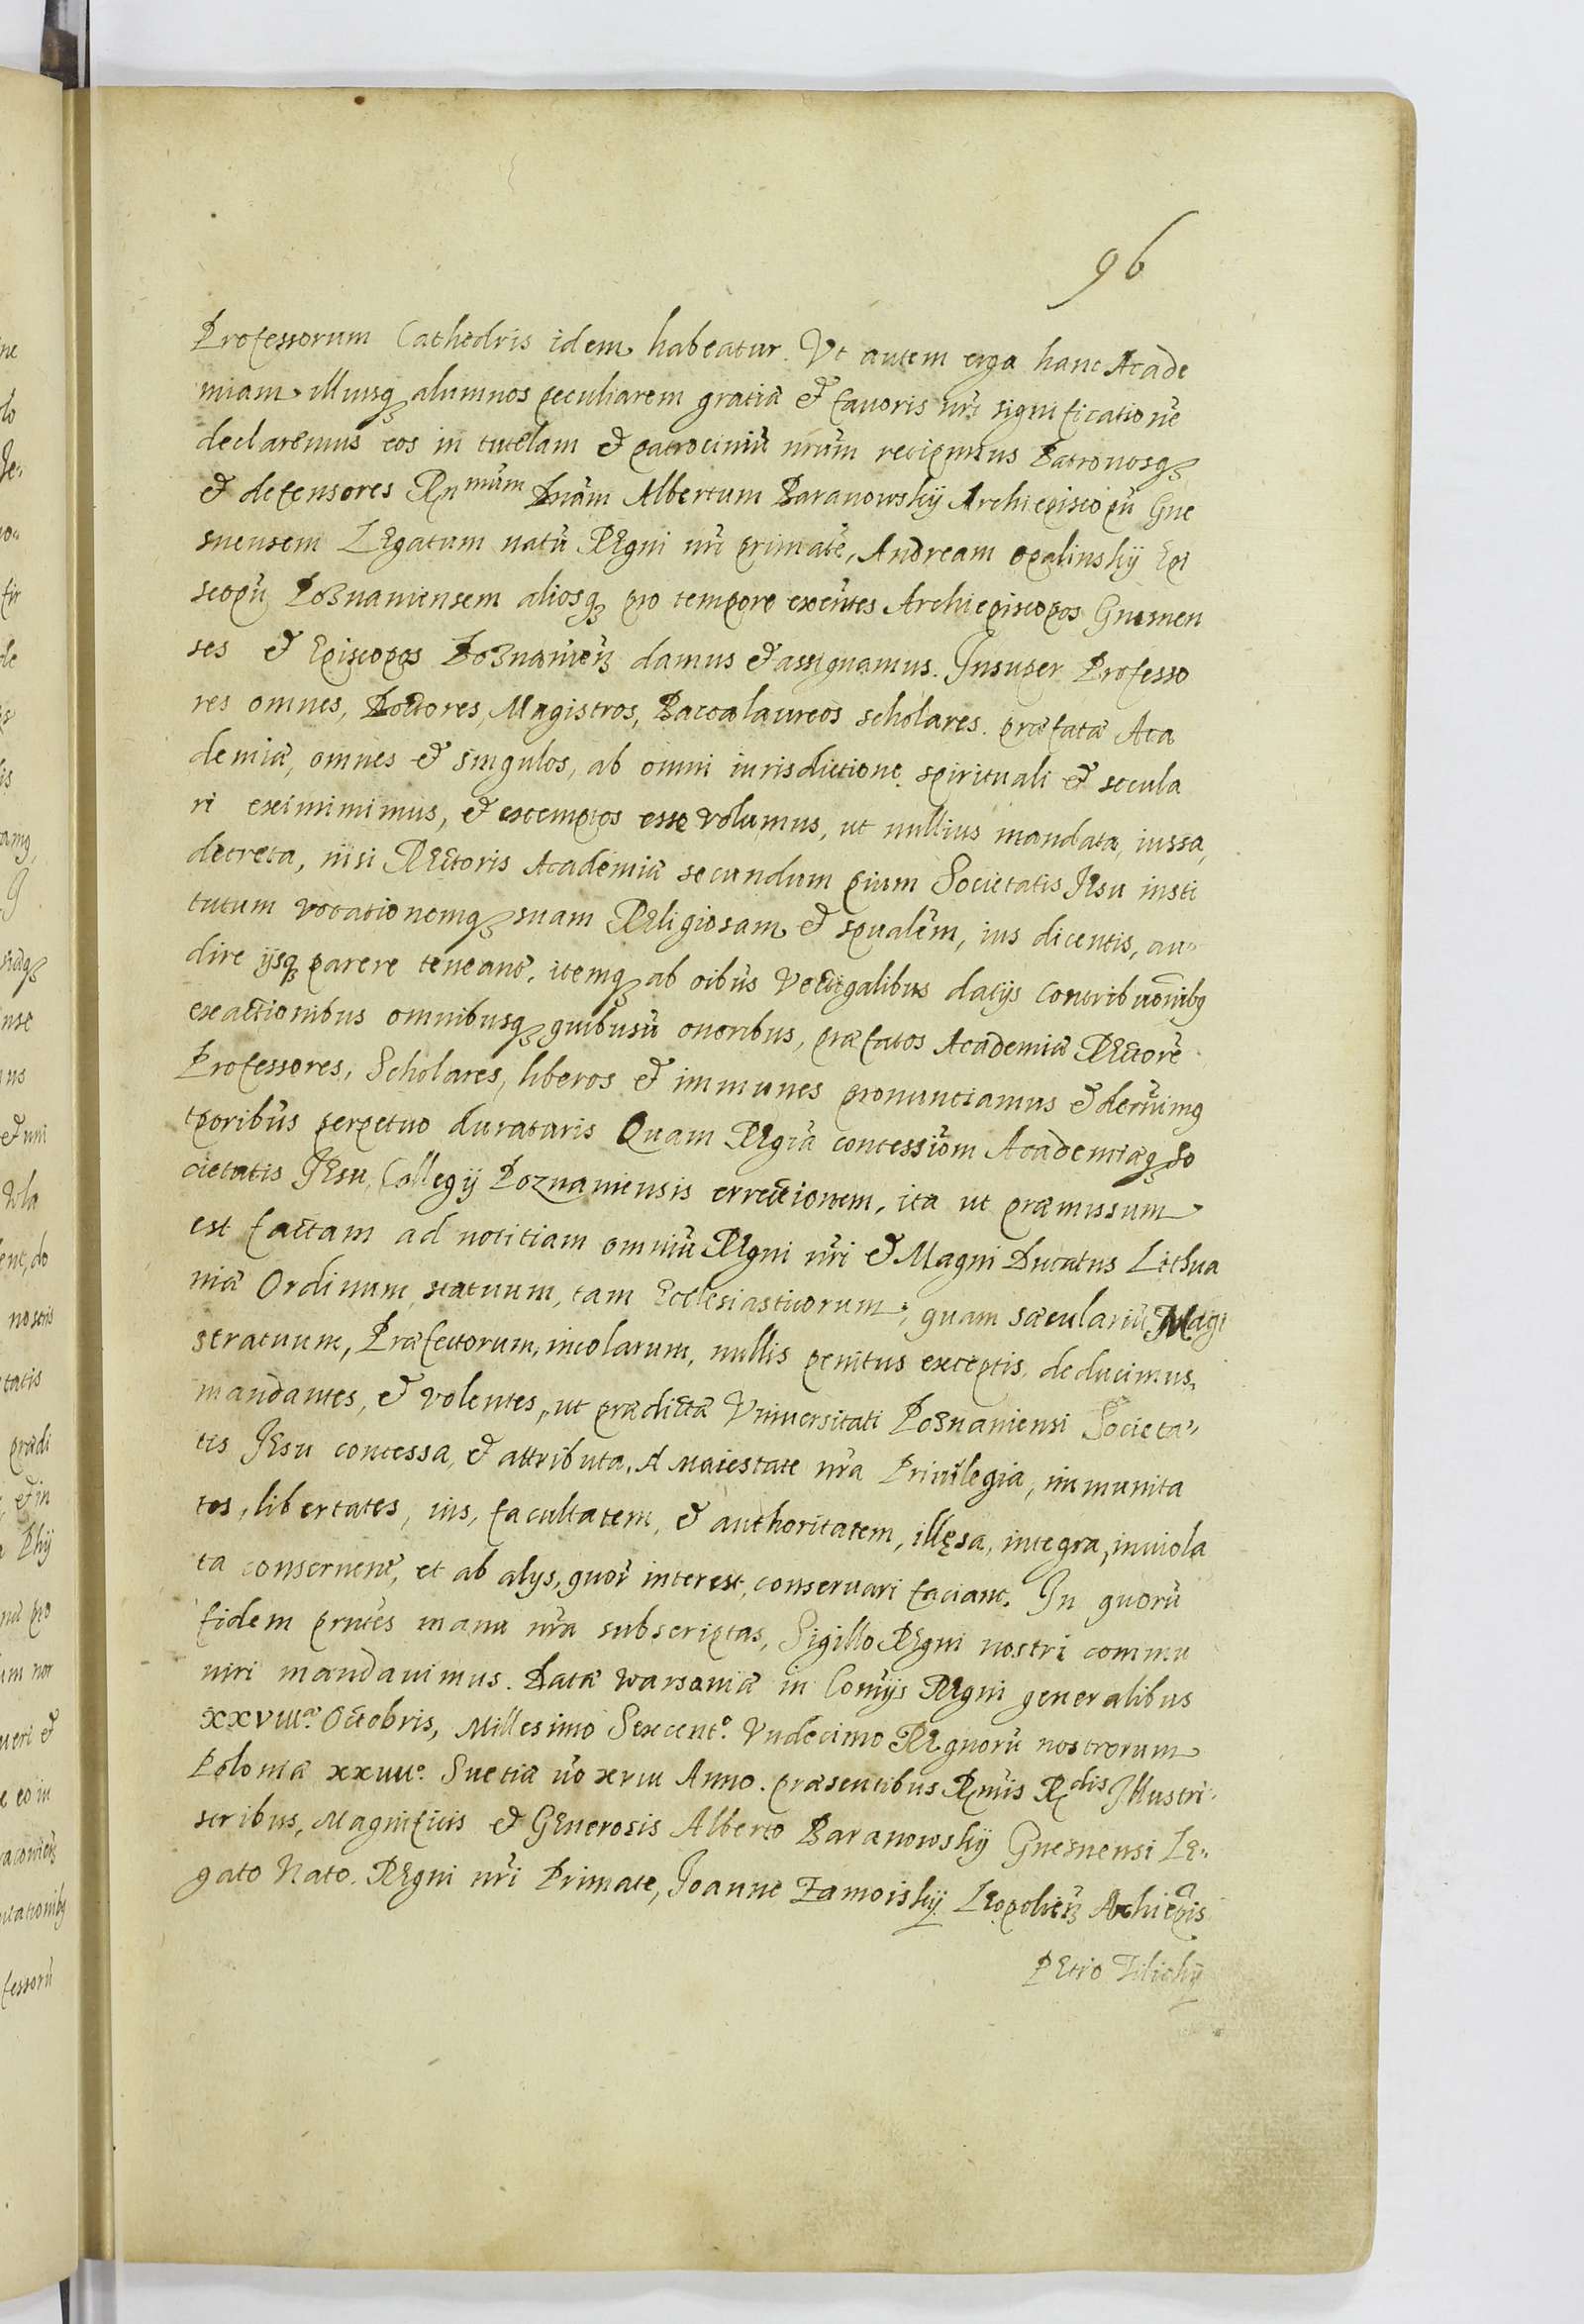 96
Professorum Cathedris idem habeatur. Vt autem erga hanc Acade
miam illiusq alumnos peculiarem gratiã & fauoris nri significationẽ
declaremus eos in tutelam & patrociniũ nrũm recipimus Patronosq
& defensores Rnmũm Dnũm Albertum Baranowskÿ Archiepiscopũ Gne
snensem Legatum natũ Regni nri primatẽ, Andream Opalinskÿ Epi
scopũ Posnaniensem aliosq pro tempore exñtes Archiepiscopos Gnesnen
ses & Episcopos Posnanieñ damus & assignamus. Insuper Professo
res omnes, Doctores, Magistros, Baccalaureos scholares præfatæ Aca
demiæ, omnes & singulos, ab omni iurisdictione spirituali & secula
ri eximimimus, & exemptos esse volumus, ut nullius mandata, iussa,
decreta, nisi Rectoris Academiæ secundum pium Societatis Iesu insti
tutum vocationemq suam Religiosam & spualẽm, ius dicentis, au-
dire ijsq parere teneant, itemq ab oibus Vectigalibus datijs Contributionibq
exactionibus omnibusq quibusũ oneribus, præfatos Academiæ Rectorẽ
Professores, Scholares, liberos & immunes pronunciamus & decernimq
tporibus perpetuo duraturis Quam Regiã concessiõm Academiæq So
cietatis Iesu, Collegij Poznaniensis errectionem, ita ut præmissum
est factam ad notitiam omniũ Regni nri & Magni Ducatus Lithua
niæ Ordinum, statuum, tam Ecclesiasticorum, quam sæculariũ, Magi
stratuum, Præfectorum, incolarum, nullis penitus exceptis, deducimus,
mandantes, & volentes, ut prædictæ Vniuersitati Posnaniensi Societa-
tis Iesu concessa, & attributa, A Maiestate nra Priuilegia, immunita
tes, libertates, ius, facultatem, & authoritatem, illęsa, integra, inuiola
ta conseruent, et ab alys, quor interest, conseruari faciant. In quorũ
fidem prntes manu nra subscriptas, Sigillo Regni nostri commu
niri mandauimus. Datæ Warsouiæ in Comijs Regni generalibus
XXVIIIa. Octobris, Millesimo Sexcento. Vndecimo Regnorũ nostrorum
Poloniæ xxiiiio. Suetiæ uo xviii Anno. præsentibus Rmis Rdis Illustri
stribus, Magnificis & Generosis Alberto Baranowskÿ Gnesnensi Le-
gato Nato. Regni nri Primate, Joanne Zamoiskÿ Leopolieñ Archiepis
Petro Tilickÿ